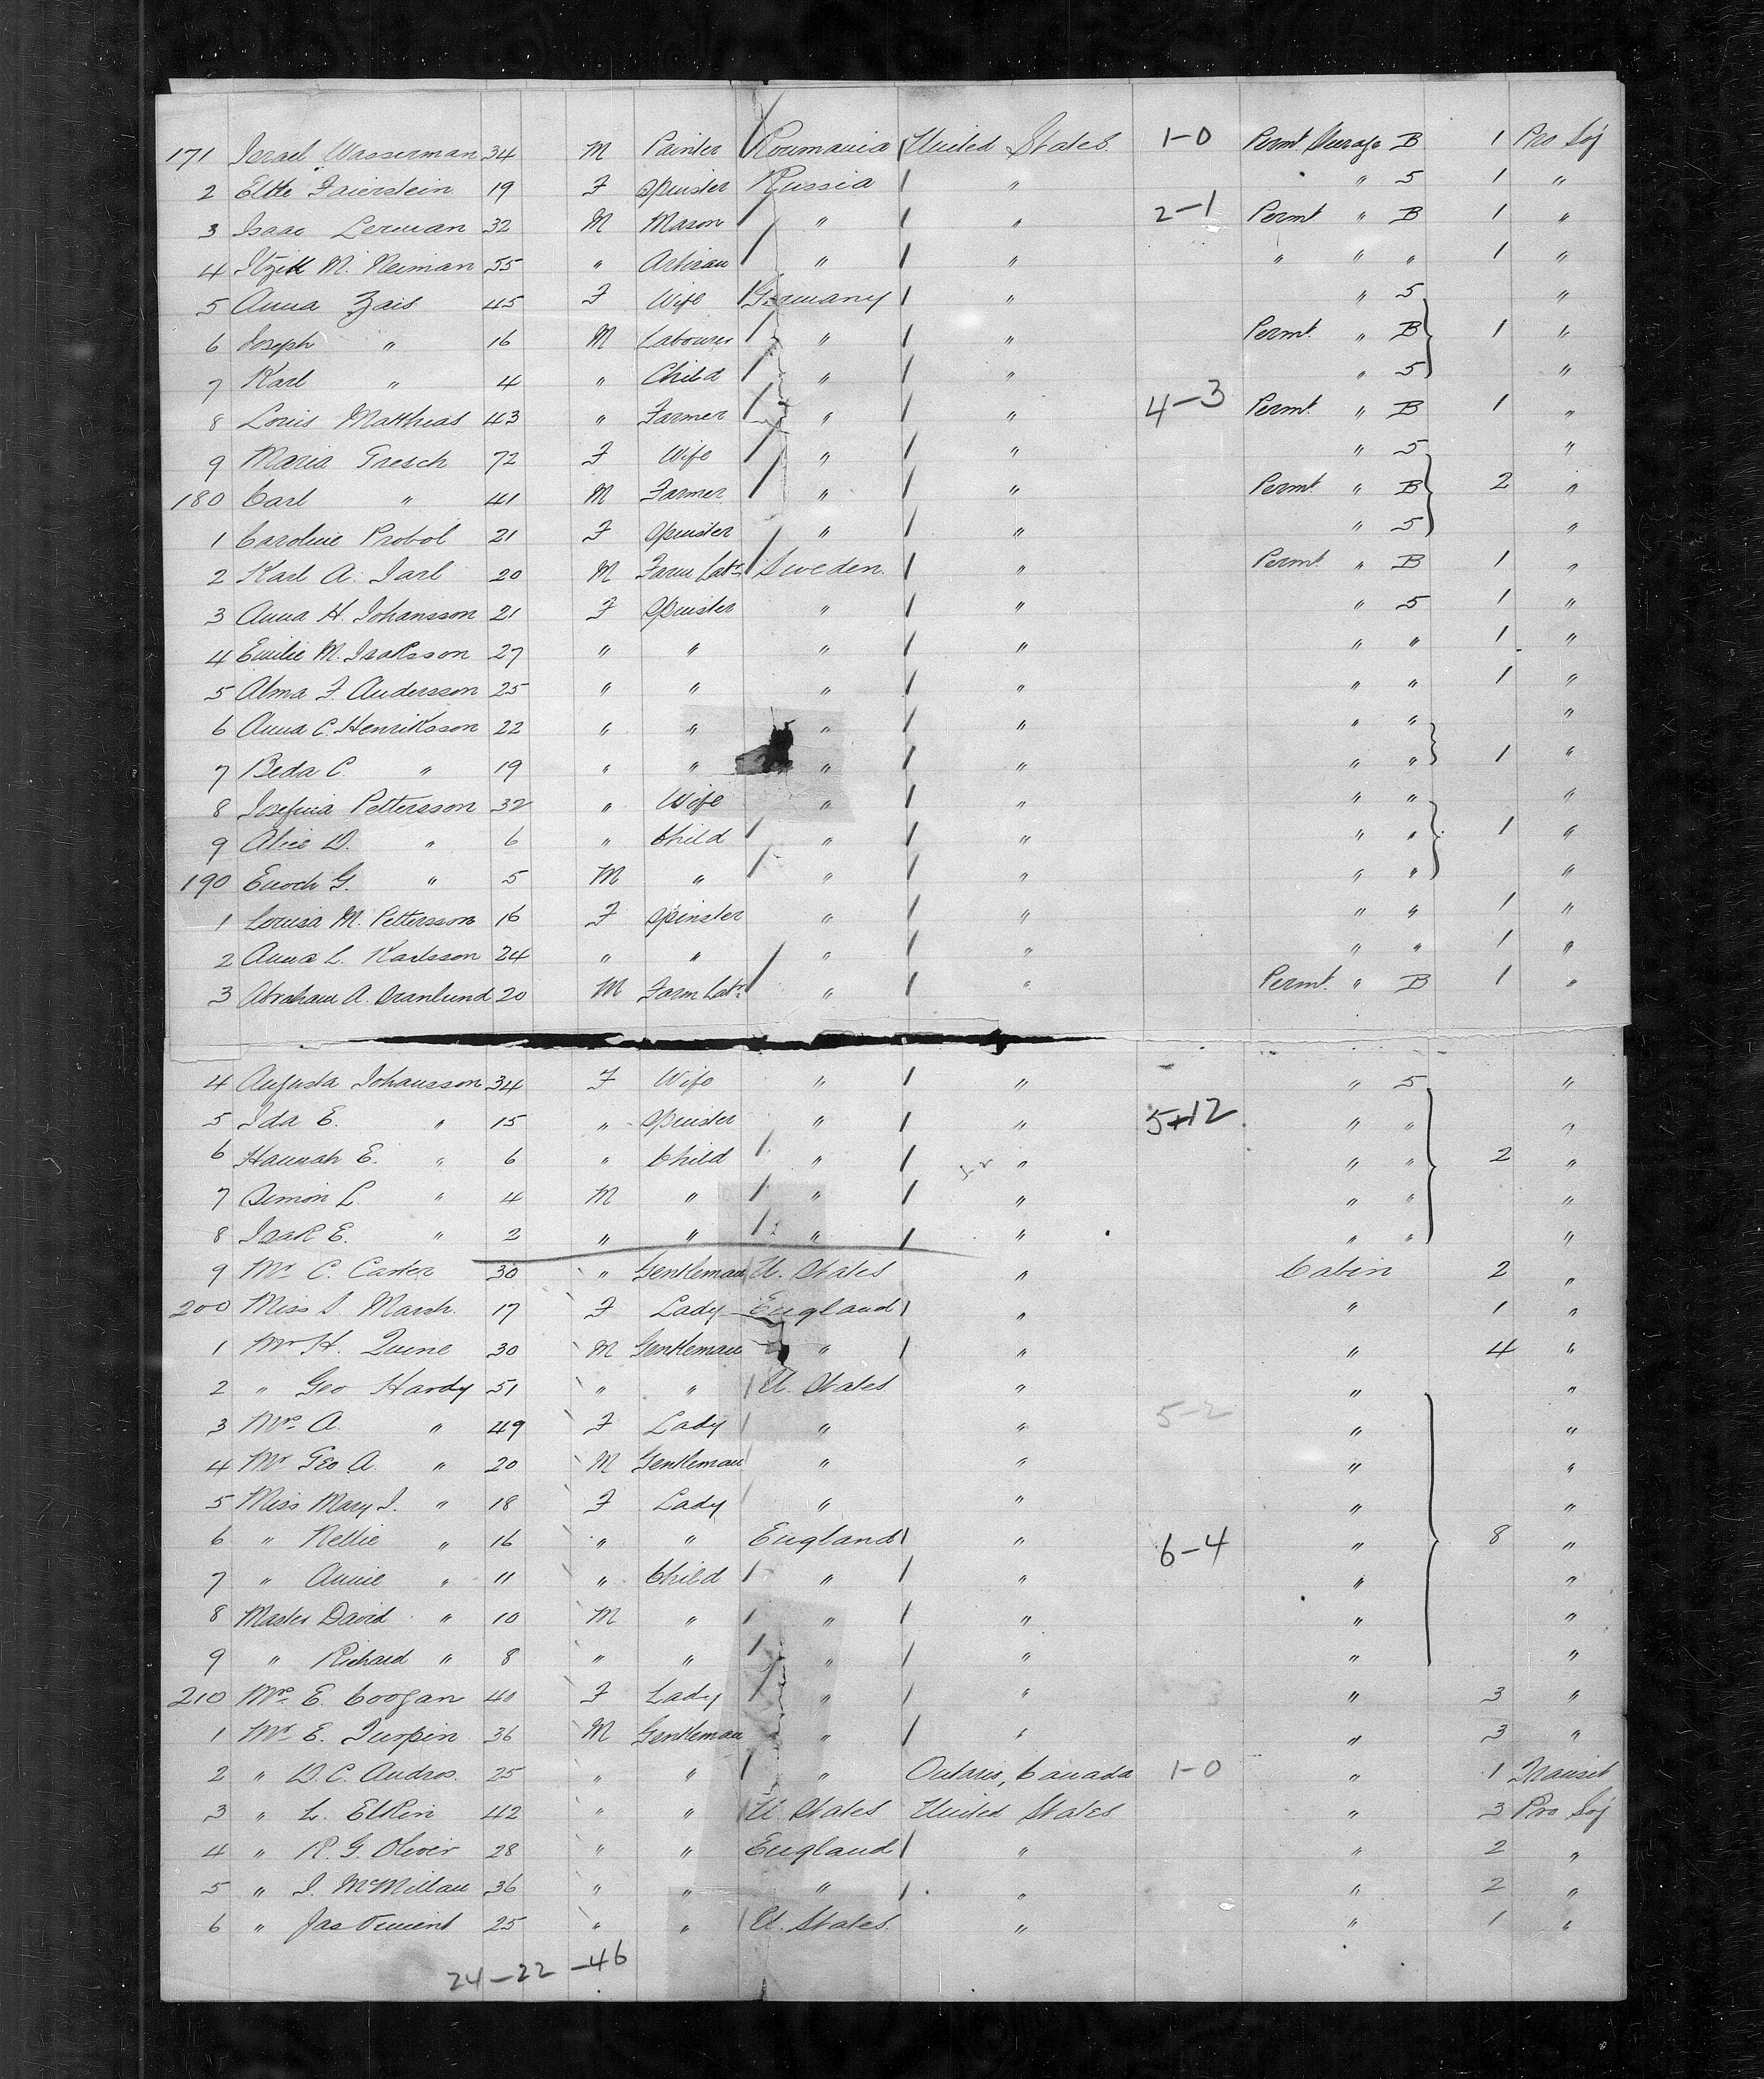 171 Israel Wasserman 34 M Painter Roumania United States 1-0 Permt Steerage B 1 Pro Soj
2 Elke Faierstein 19 F Spinster Russia " " 5 1 "
3 Isaac Lerman 32 M Mason " " 2-1 Permt " B 1 "
4 Itzik M. Neiman 55 " Artisan " " " " " 1 "
5 Anna Zais 45 F Wife Germany " " 5 "
6 Joseph " 16 M Labourer " " Permt. " B 1 "
7 Karl " 4 " Child " " " 5 "
8 Louis Matthias 43 " Farmer " " 4-3 Permt. " B 1 "
9 Maria Gresch 72 F Wife " " " 5 "
180 Carl " 41 M Farmer " " Permt. " B 2 "
1 Caroline Probol 21 F Spinster " " " 5 "
2 Karl A. Jarl 20 M Farm Labr Sweden. " Permt. " B 1 "
3 Anna H. Johansson 21 F Spinster " " " 5 1 "
4 Emilie M. Isaksson 27 " " " " " " 1 "
5 Alma F. Andersson 25 " " " " " " 1 "
6 Anna C. Henriksson 22 " " " " " " "
7 Beda C. " 19 " " " " " " 1 "
8 Josefina Pettersson 32 " Wife " " " " "
9 Alice D. " 6 " Child " " " " 1 "
190 Enoch G. " 5 M " " " " " "
1 Louisa M. Pettersson 16 F Spinster " " " " 1 "
2 Anna L. Karlsson 24 " " " " " " 1 "
3 Abraham A. Granlund 20 M Farm Labr " " Permt. " B 1 "
4 Augusta Johansson 34 F Wife " " " 5 "
5 Ida E. " 15 " Spinster " " 5+12 " " "
6 Hannah E. " 6 " Child " " " " 2 "
7 Simon L " 4 M " " " " " "
8 Isak E. " 2 " " " " " " "
9 Mr C. Carter 30 " Gentleman U. States " Cabin 2 "
200 Miss S. Marsh. 17 F Lady England " " 1 "
1 Mr H. Quine 30 M Gentleman " " " 4 "
2 " Geo Hardy 51 " " U. States " " "
3 Mrs A. " 49 F Lady " " 5-2 " "
4 Mr Geo A. " 20 M Gentleman " " " "
5 Miss Mary J. " 18 F Lady " " " "
6 " Nellie " 16 " " England " 6-4 " 8 "
7 " Annie " 11 " Child " " " "
8 Master David " 10 M " " " " "
9 " Richard " 8 " " " " " "
210 Mrs E. Coogan 40 F Lady " " " 3 "
1 Mr E. Turpin 36 M Gentleman " " " 3 "
2 " D. C. Andros. 25 " " " Ontario, Canada 1-0 " 1 Transit
3 " L. Elkin 42 " " U States United States " 3 Pro Soj
4 " R. G. Oliver 28 " " England " " 2 "
5 " J. McMillan 36 " " " " " 2 "
6 " Jas 25 " " U. States. " " 1 "
24-22-46